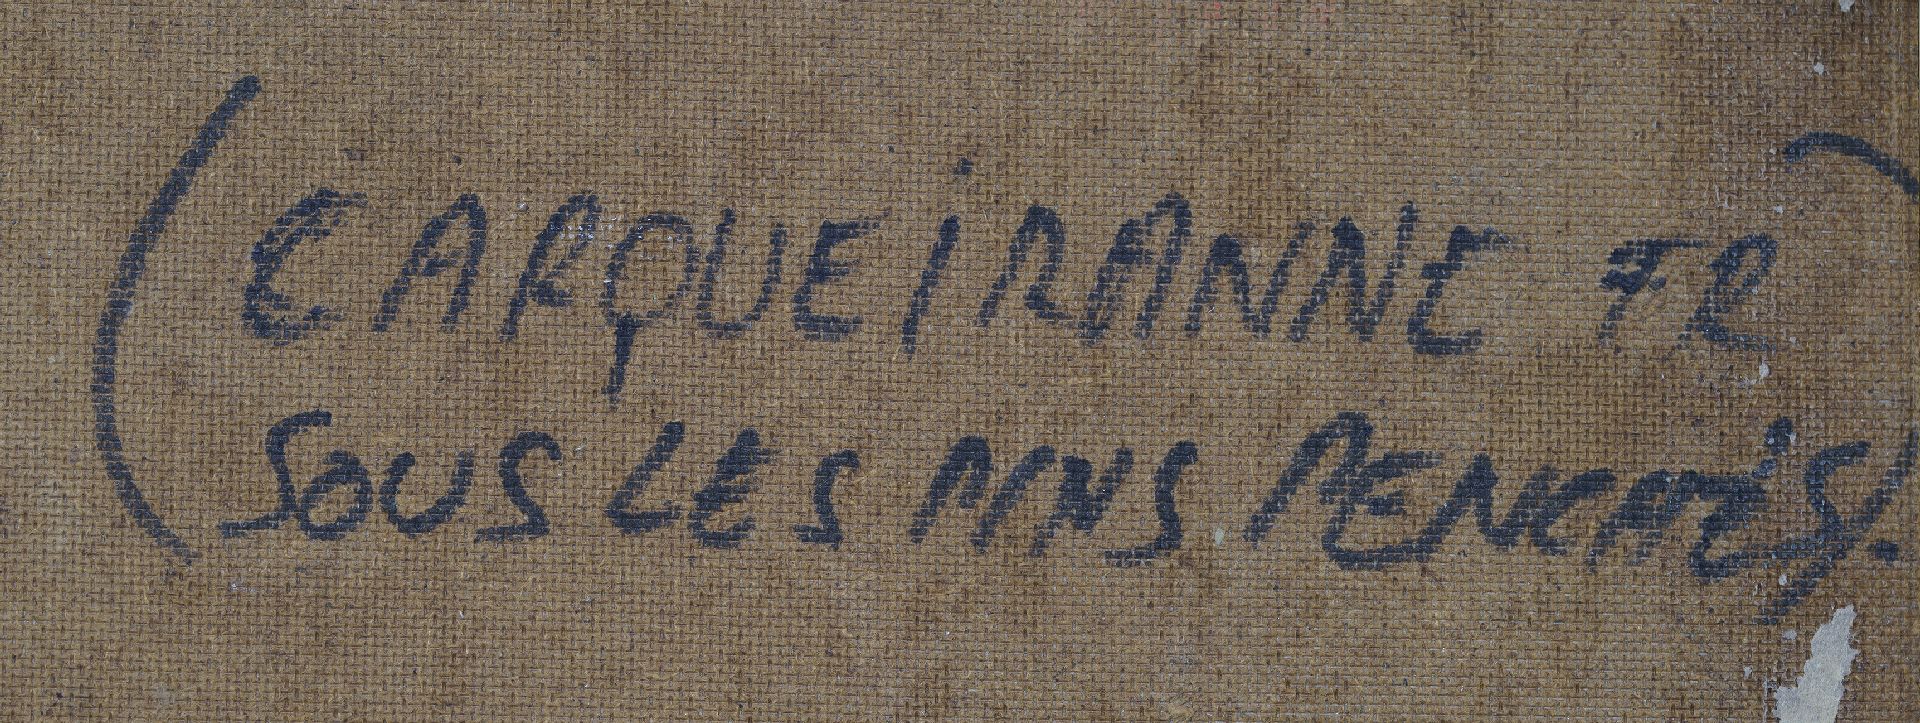 (CARQUEiRANNE FR
SOUS LES PINS PENCHÉS.)